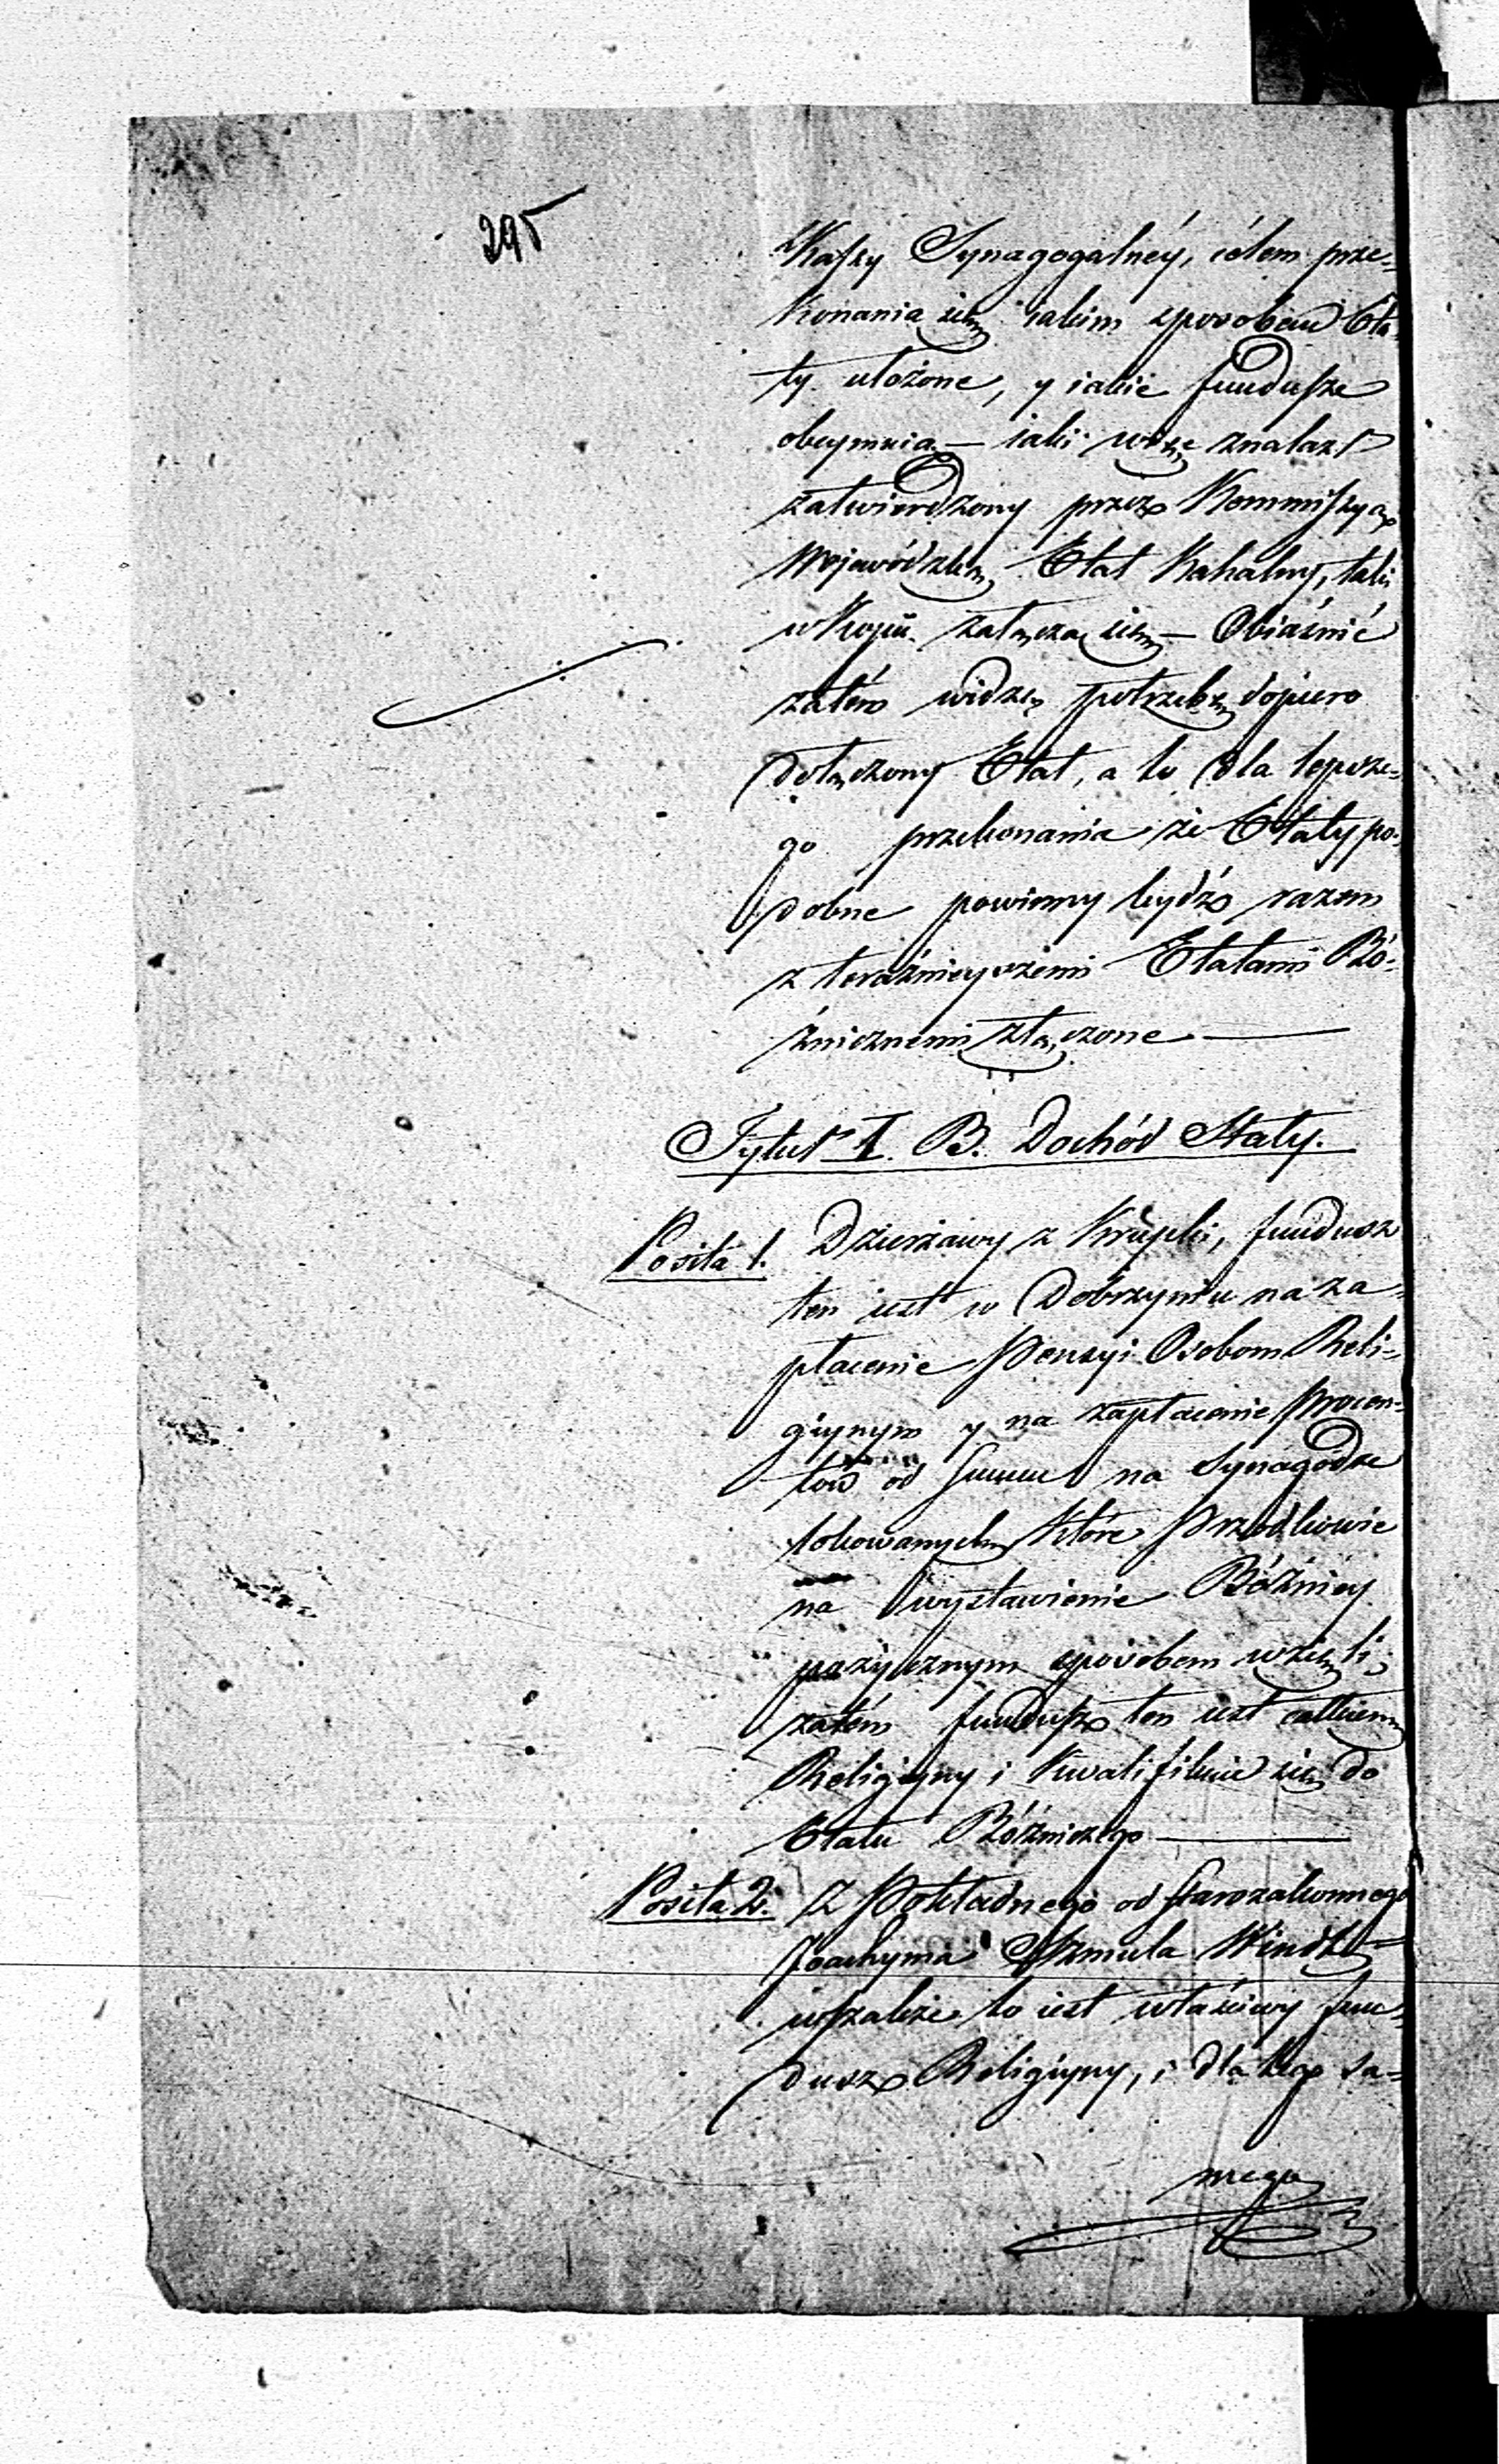 295
Kassy Synagogalnéy, célem prze-
konania się iakim sposobem Eta-
ty ułożone, y iakie fundusze
obeymuia — iaki wszę znalazł
zatwierdzony przez Kommissyą
Wojewódzką Etat Kahalny, taki
w kopii załącza się — Obiaśnić
zatém widzę potrzebę dopiero
dołączony Etat, a to dla lepsze-
go przekonania że Etaty po-
dobne powinny bydź razem
z teraźnieyszemi Etatami Bó-
żnicznemi złączone —
Tytuł I. B. Dochód Stały.
Posita 1. Dzierżawy z Krupki, fundusz
ten iest w Dobrzyniu na za-
płacenie Pensyi Osobom Reli-
giynym y na zapłacenie Procen-
tów od Summ na Synagodze
lokowanych które Przodkowie
na wystawienie Bóżnicy
pożycznym sposobem wzięli;
zatém fundusz ten iest całkiem
Religiyny i kwalifikuie się do
Etatu Bóżniczego —
Posita 2. Z Pokładnego od Starozakonnego
Joachyma Szmula
wszakże to iest właściwy fun-
dusz Religiyny, i dla tego sa-
mego